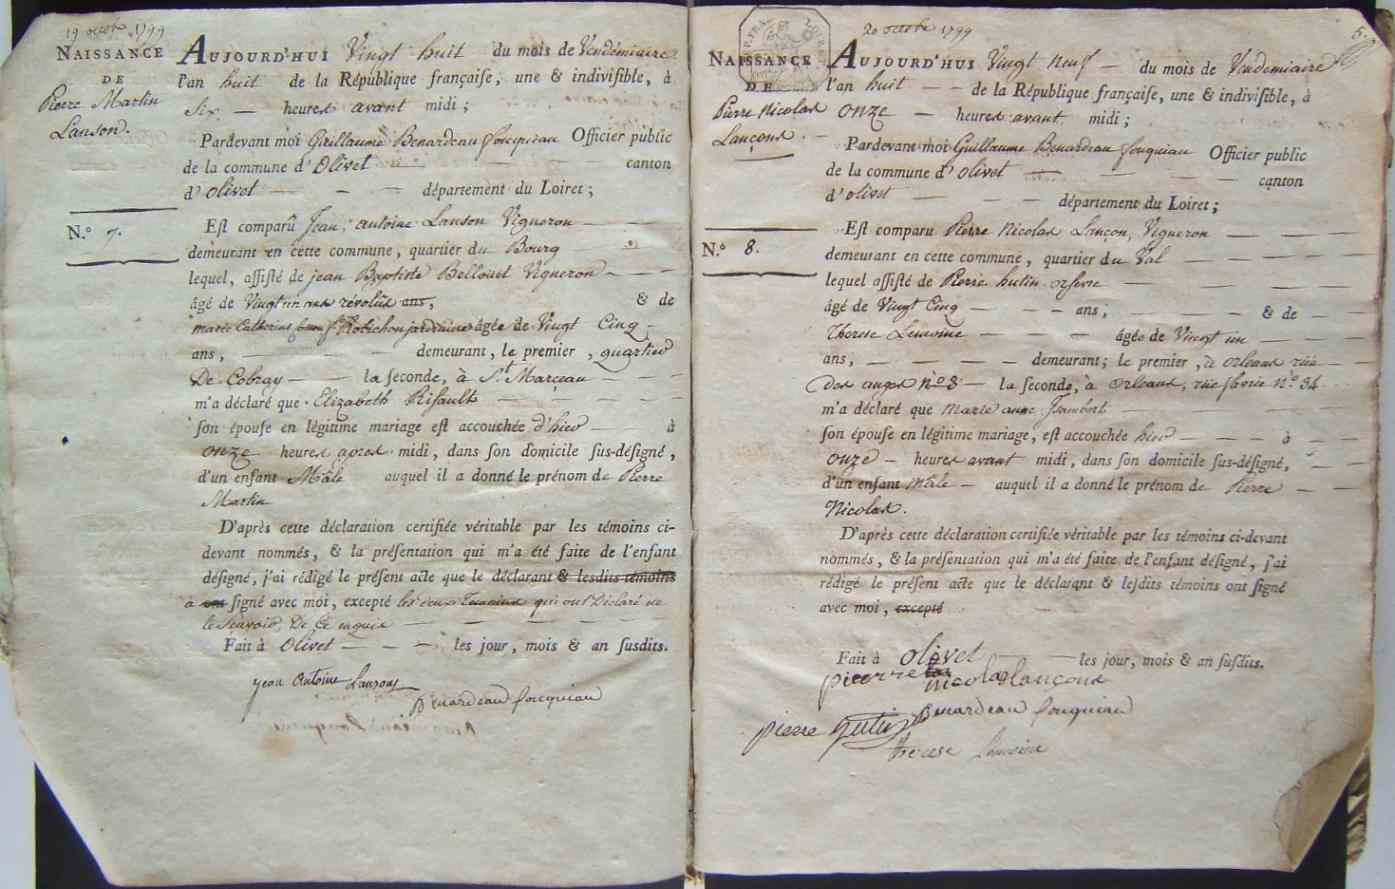 19 octobre 1799
NAISSANCE
DE
Pierre Martin
Lanson.
N.º 7.
AUJOURD'HUI Vingt huit du mois de Vendémiaire
l'an huit de la République françaiſe, une & indiviſible, à
Six — heures avant midi ;
Pardevant moi Guillaume Benardeau fouquiau Officier public
de la commune d'Olivet — canton
d'olivet — — — département du Loiret ;
Eſt comparû Jean antoine Lanson Vigneron
demeurant en cette commune, quartier du Bourg
lequel, aſſiſté de jean Baptiste Bellouet Vigneron — —
âgé de Vingt un ans révolus ans, & de
marie Catherine Robichon âgée de Vingt Cinq —
ans, — demeurant, le premier, quartier
De Cobray — la ſeconde, à St Marceau — —
m'a déclaré que Elizabeth Rifault — — —
ſon épouſe en légitime mariage eſt accouchée d'hier — à
onze heures apres midi, dans ſon domicile ſus-déſigné,
d'un enfant Mâle auquel il a donné le prénom de Pierre
Martin
D'après cette déclaration certifiée véritable par les témoins ci-
devant nommés, & la préſentation qui m'a été faite de l'enfant
déſigné, j'ai rédigé le préſent acte que le déclarant & leſdits témoins
a ont ſigné avec moi, excepté les deux Temoins qui ont Déclaré ne
le Scavoir, De Ce enquis — — —
Fait à Olivet — — — les jour, mois & an ſuſdits.
jean Antoine Lanson
Benardeau fouquiau
20 octobre 1799
5.
NAISSANCE
DE
Pierre Nicolas
Lançons.
N.º 8.
AUJOURD'HUI Vingt neuf — du mois de Vendemiaire
l'an huit — — de la République françaiſe, une & indiviſible, à
onze — heures avant midi ;
Pardevant moi Guillaume Benardeau fouquiau Officier public
de la commune d'olivet — — — canton
d'olivet — — — département du Loiret ;
Eſt comparu Pierre Nicolas Lançon, Vigneron — — —
demeurant en cette commune, quartier du Val — — —
lequel aſſiſté de Pierre hutin orfevre — — —
âgé de Vingt Cinq — — — ans, — — & de —
Therese Lemoine — — âgée de Vingt un — —
ans, — — — demeurant ; le premier, à orleans rüe —
Des anges nº 8 — la ſeconde, à orleans, rüe nº 34
m'a déclaré que marie anne Jsambert
ſon épouſe en légitime mariage, eſt accouchée hier — — — à — —
onze — heures avant midi, dans ſon domicile ſus-déſigné, — —
d'un enfant mâle — auquel il a donné le prénom de Pierre — —
Nicolas.
D'après cette déclaration certifiée véritable par les témoins ci-devant
nommés, & la préſentation qui m'a été faite de l'enfant déſigné, j'ai
rédigé le préſent acte que le déclarant & leſdits témoins ont ſigné
avec moi, excepté
Fait à olivet — — les jour, mois & an ſuſdits.
pierre nicolas lançons
Benardeau fouquiau
pierre hutin
therese Lemoine